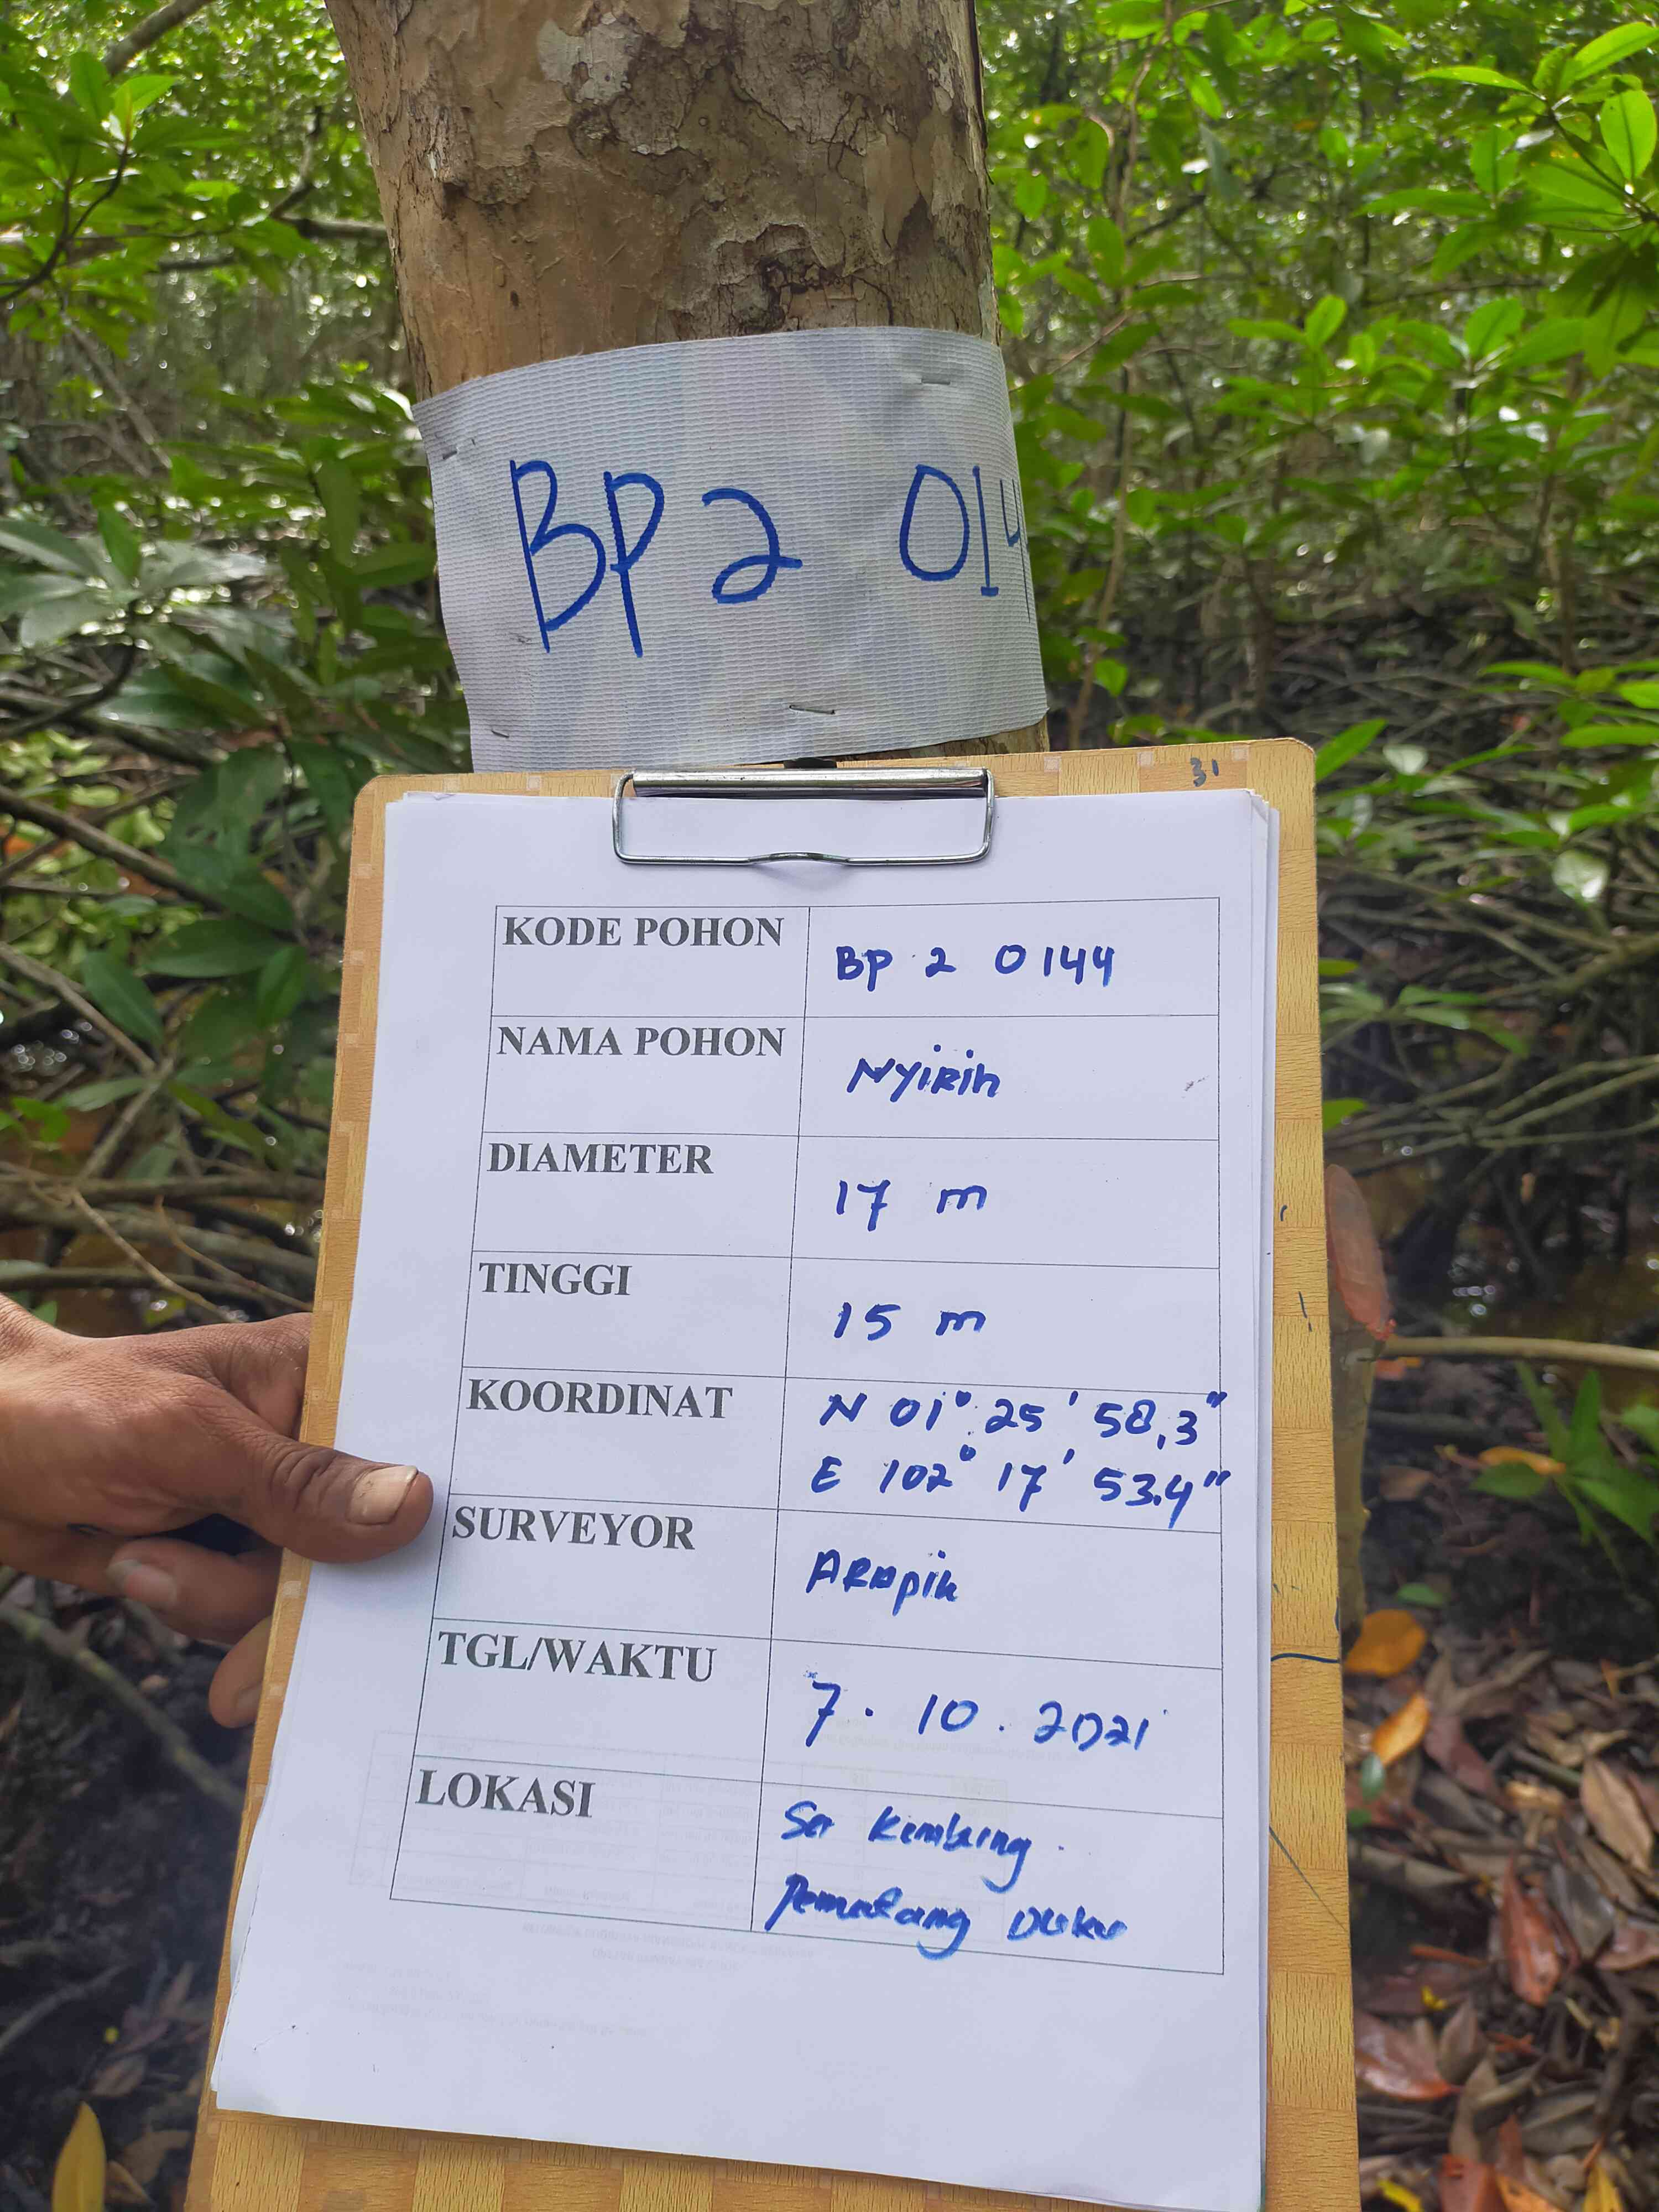 BP 2 014
31
KODE POHON BP 2 0144
NAMA POHON Nyirih
DIAMETER 17 m
TINGGI 15 m
KOORDINAT N 01° 25' 58,3"
E 102° 17' 53.4"
SURVEYOR ARApik
TGL/WAKTU 7. 10. 2021
LOKASI Sei Kembung
Pematang Duku